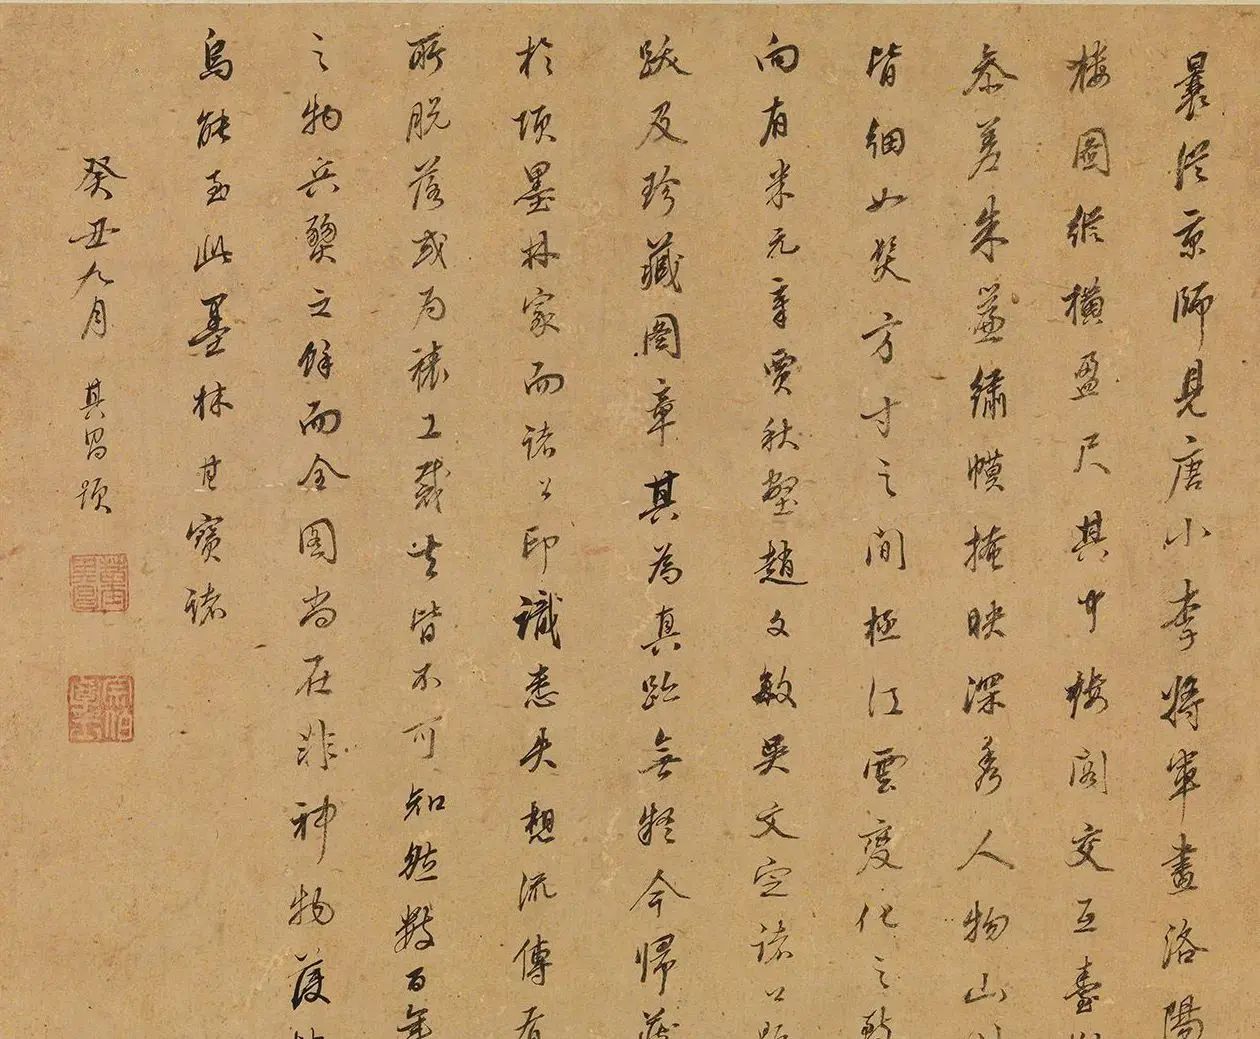 曩從京師見唐小李將軍畫洛陽
樓圖縱橫盈尺其中樓閣交互臺
叅差朱簾繡幙掩映深秀人物山
皆細如髮方寸之間極江雲變化之致
向有米元章賈秋壑趙文敏吳文定諸公題
跋及珍藏圖章其為真跡無疑今歸藏
於項墨林家而諸公印識悉失想流傳有
所脫落或為裱工裁去皆不可知然數百年
之物兵燹之餘而全圖尚在非神物護
烏能至此墨林其寶諸
癸丑九月 其昌題